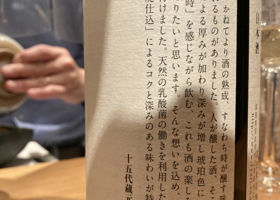 日本酒
かねてより酒の熟成、すなわち時が醸す味
れるものがありました。人が醸した酒、そ
よる厚みが加わり深みが増し琥珀色に
時」を感じながら飲む、これも酒の楽し
りたいと思います。そんな想いを込め、
けました。天然の乳酸菌の働きを利用した
廃仕込」によるコクと深みのある味わいが特
十五代蔵